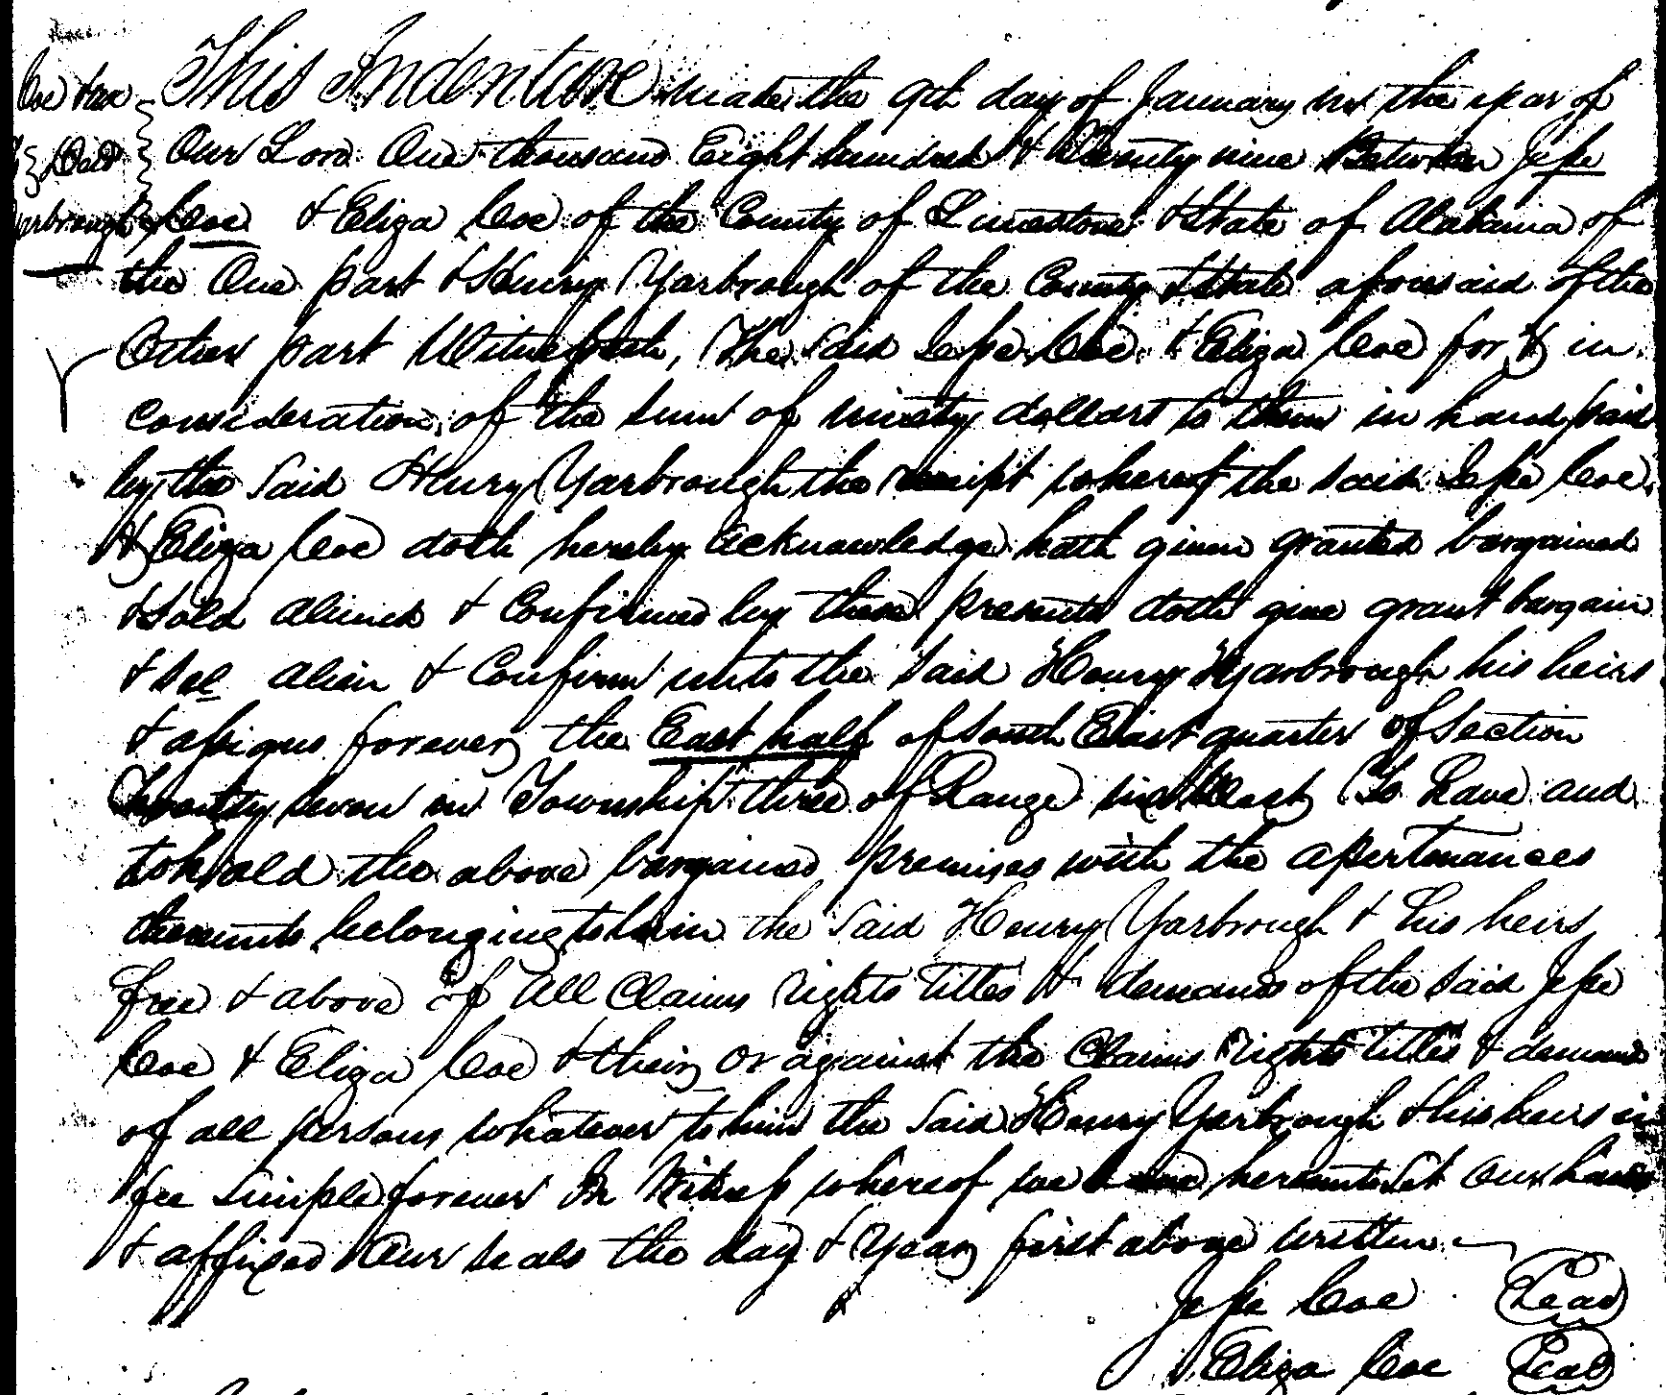 Coe &ux
Deed
Yarbrough
This Indenture made the 9th day of January in the year of
Our Lord One thousand Eight hundred & Twenty nine Between Jesse
Coe & Eliza Coe of the County of Limestone & State of Alabama of
the One part & Henry Yarbrough of the County & State aforesaid of the
Other part Witnesseth, The said Jesse Coe & Eliza Coe for & in
Consideration of the sum of ninety dollars to them in hand paid
by the Said Henry Yarbrough the receipt whereof the said Jesse Coe
& Eliza Coe doth hereby acknowledge hath given granted bargained
& Sold aliened & Confirmed by these presents doth give grant bargain
& sel alien & Confirm unto the said Henry Yarbrough his heirs
& assigns forever the East half of South East quarter of Section
Twenty seven in Township three of Range six West To have and
to hold the above bargained premises with the apertenances
thereunto belonging to him the Said Henry Yarbrough & his heirs
free & above of all Claims rights titles & demands of the said Jesse
Coe & Eliza Coe & their or against the Claims rights titles & demands
of all persons whatever to him the Said Henry Yarbrough & his heirs in
fee simple forever In Witness whereof we have hereunto Set Our hands
& affixed Our seals the day & Year first above written
Jesse Coe Seal
Eliza Coe Seal